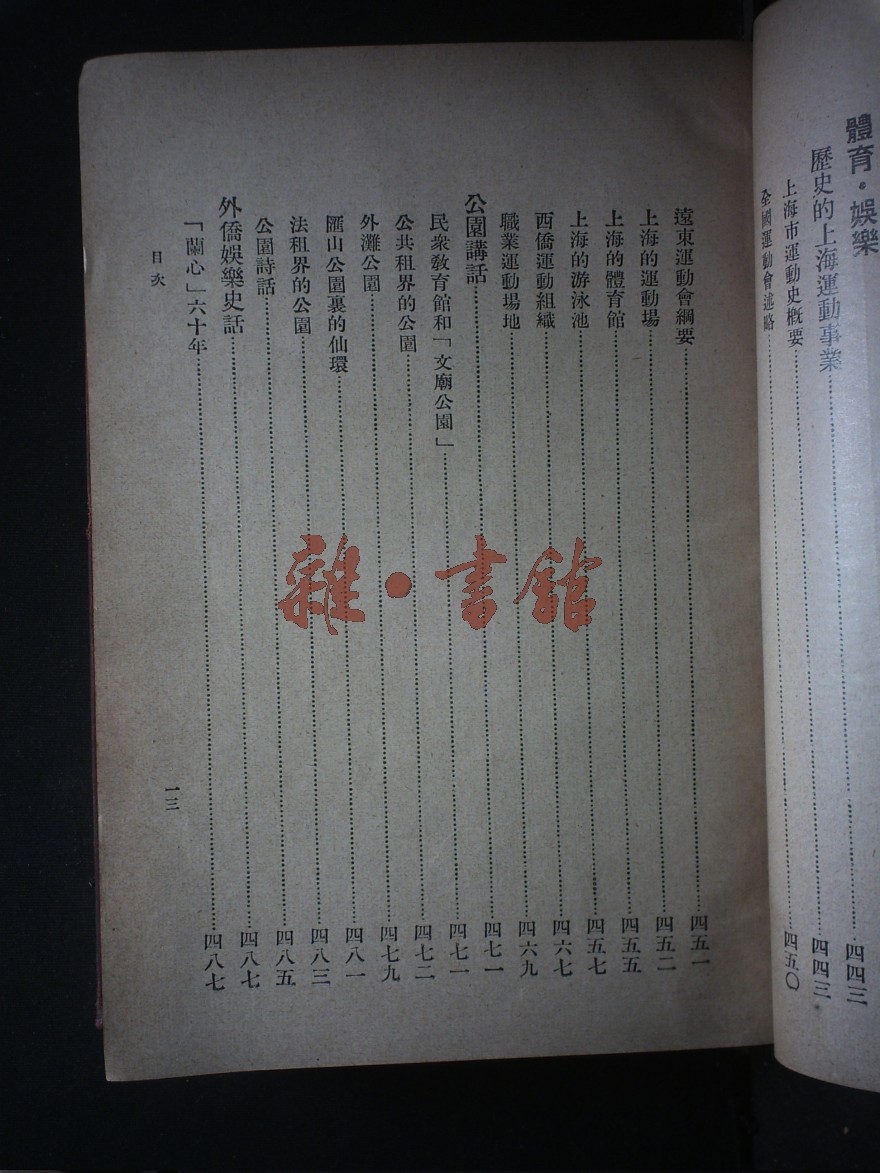 體育·娛樂……四四三
歷史的上海運動事業……四四三
上海市運動史概要……
全國運動會述略……四五〇
遠東運動會綱要……四五一
上海的運動場……四五二
上海的體育館……四五五
上海的游泳池……四五七
西僑運動組織……四六七
職業運動場地……四六九
公園講話……四七一
民衆教育館和「文廟公園」……四七一
公共租界的公園……四七二
外灘公園……四七九
匯山公園裏的仙環……四八一
法租界的公園……四八三
公園詩話……四八五
外僑娛樂史話……四八七
「蘭心」六十年……四八七
目次
一三
雜·書館